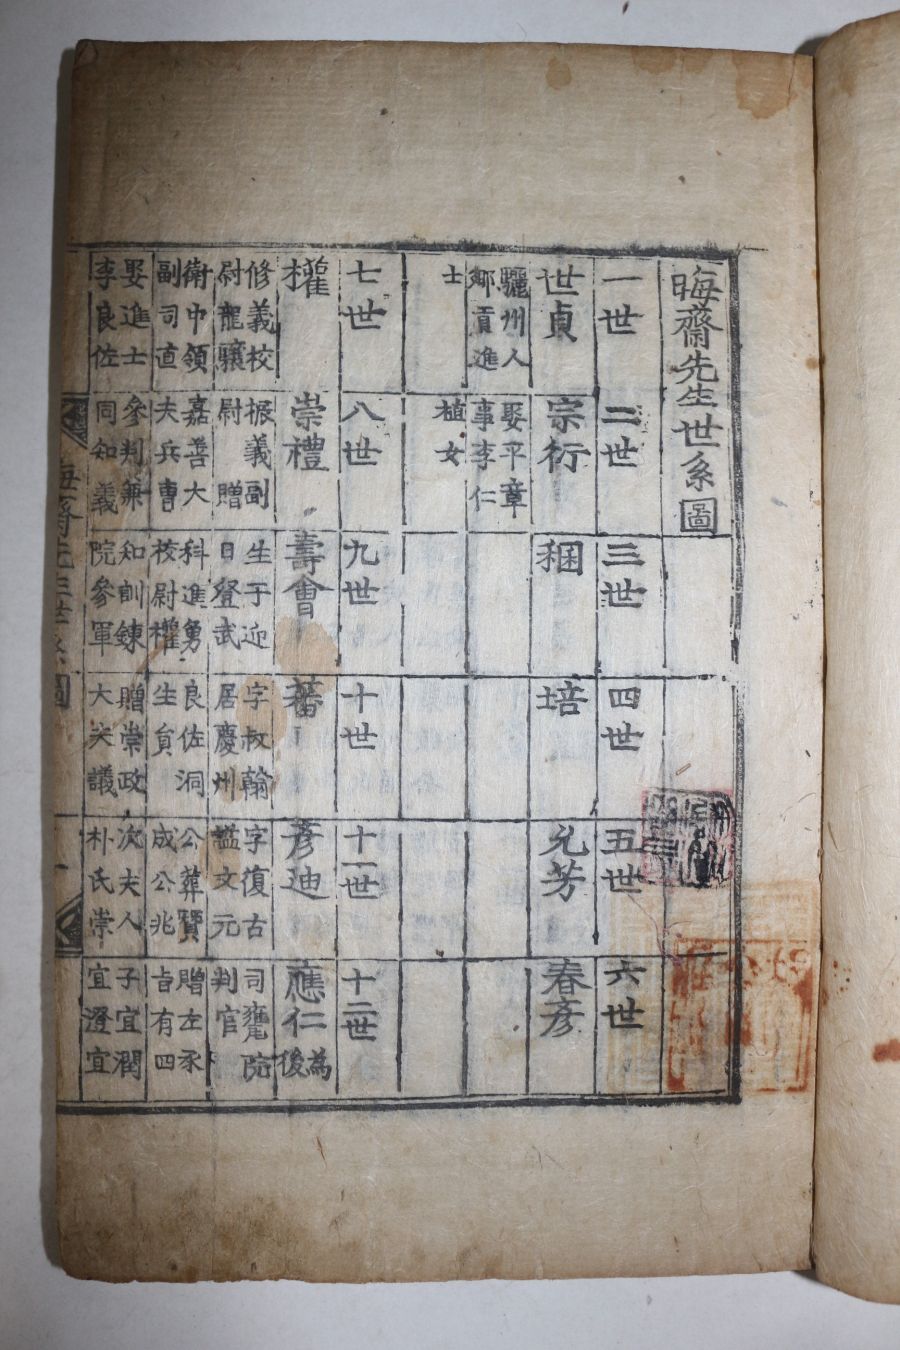 晦齋先生世系圖
一世
世貞
驪州人
鄉貢進
士
二世
宗衍
娶平章
事李仁
植女
三世
稇
四世
培
五世
允芳
六世
春彦
七世
權
修義校
尉龍驤
衛中領
副司直
娶進士
李良佐
八世
崇禮
振義副
尉贈
嘉善大
夫兵曹
參判兼
同知義
九世
壽會
生于迎
日登武
科進勇
校尉權
知訓鍊
院參軍
十世
蕃
字叔翰
居慶州
良佐洞
生員
贈崇政
大夫議
十一世
彦迪
字復古
謚文元
公葬贊
成公兆
次夫人
朴氏崇
十二世
應仁為後
司饔院
判官
贈左承
旨有四
子宜潤
宜澄宜
晦齋先生世系圖
一